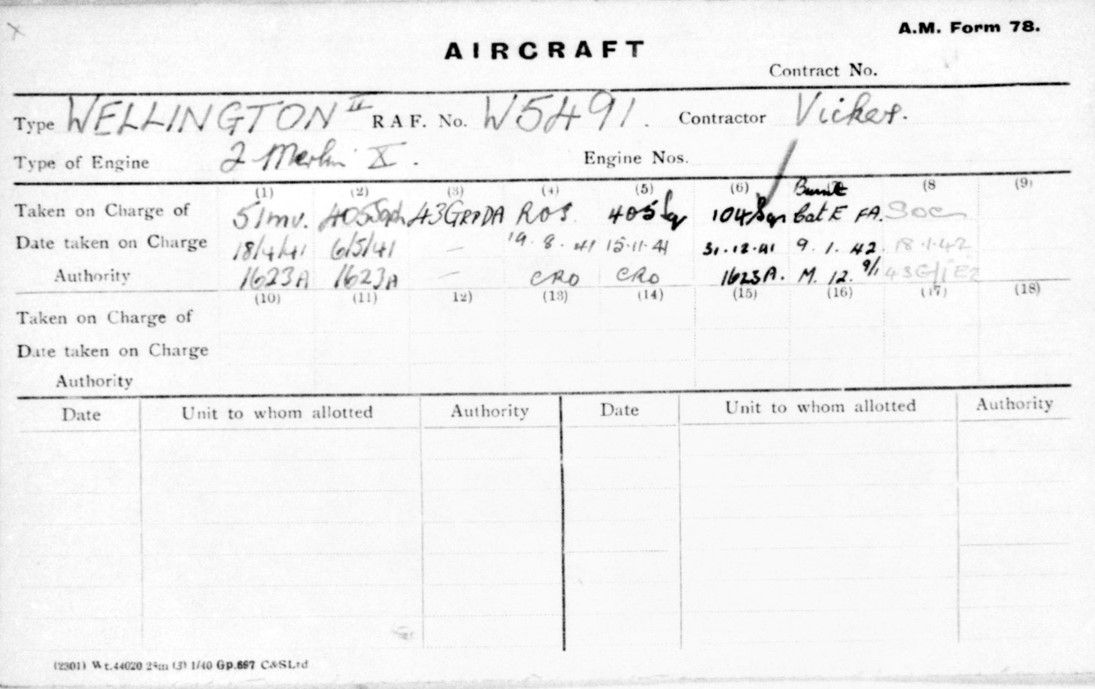 A.M. Form 78.
AIRCRAFT
Contract No.
Type WELLINGTON II R.A.F. No. W5491. Contractor Vickers.
Type of Engine 2 Merlin X. Engine Nos.
(1) (2) (3) (4) (5) (6) Burnt (8 (9)
Taken on Charge of 51MU. 405Sqdn 43GRPDA ROS 405 Sq 104 Sqn Cat E FA. SOC
Date taken on Charge 18/4/41 6/5/41 — 19.8.41 15.11.41 31.12.41 9.1.42. 18.1.42
Authority 1623A 1623A — CRO CRO 1623A. M.12. 9/1 43G/1 E2
(10) (11) 12) (13) (14) (15) (16) (17) (18)
Taken on Charge of
Date taken on Charge
Authority
Date Unit to whom allotted Authority Date Unit to whom allotted Authority
(2301) Wt.44020 25m (3) 1/40 Gp.697 C&SLtd